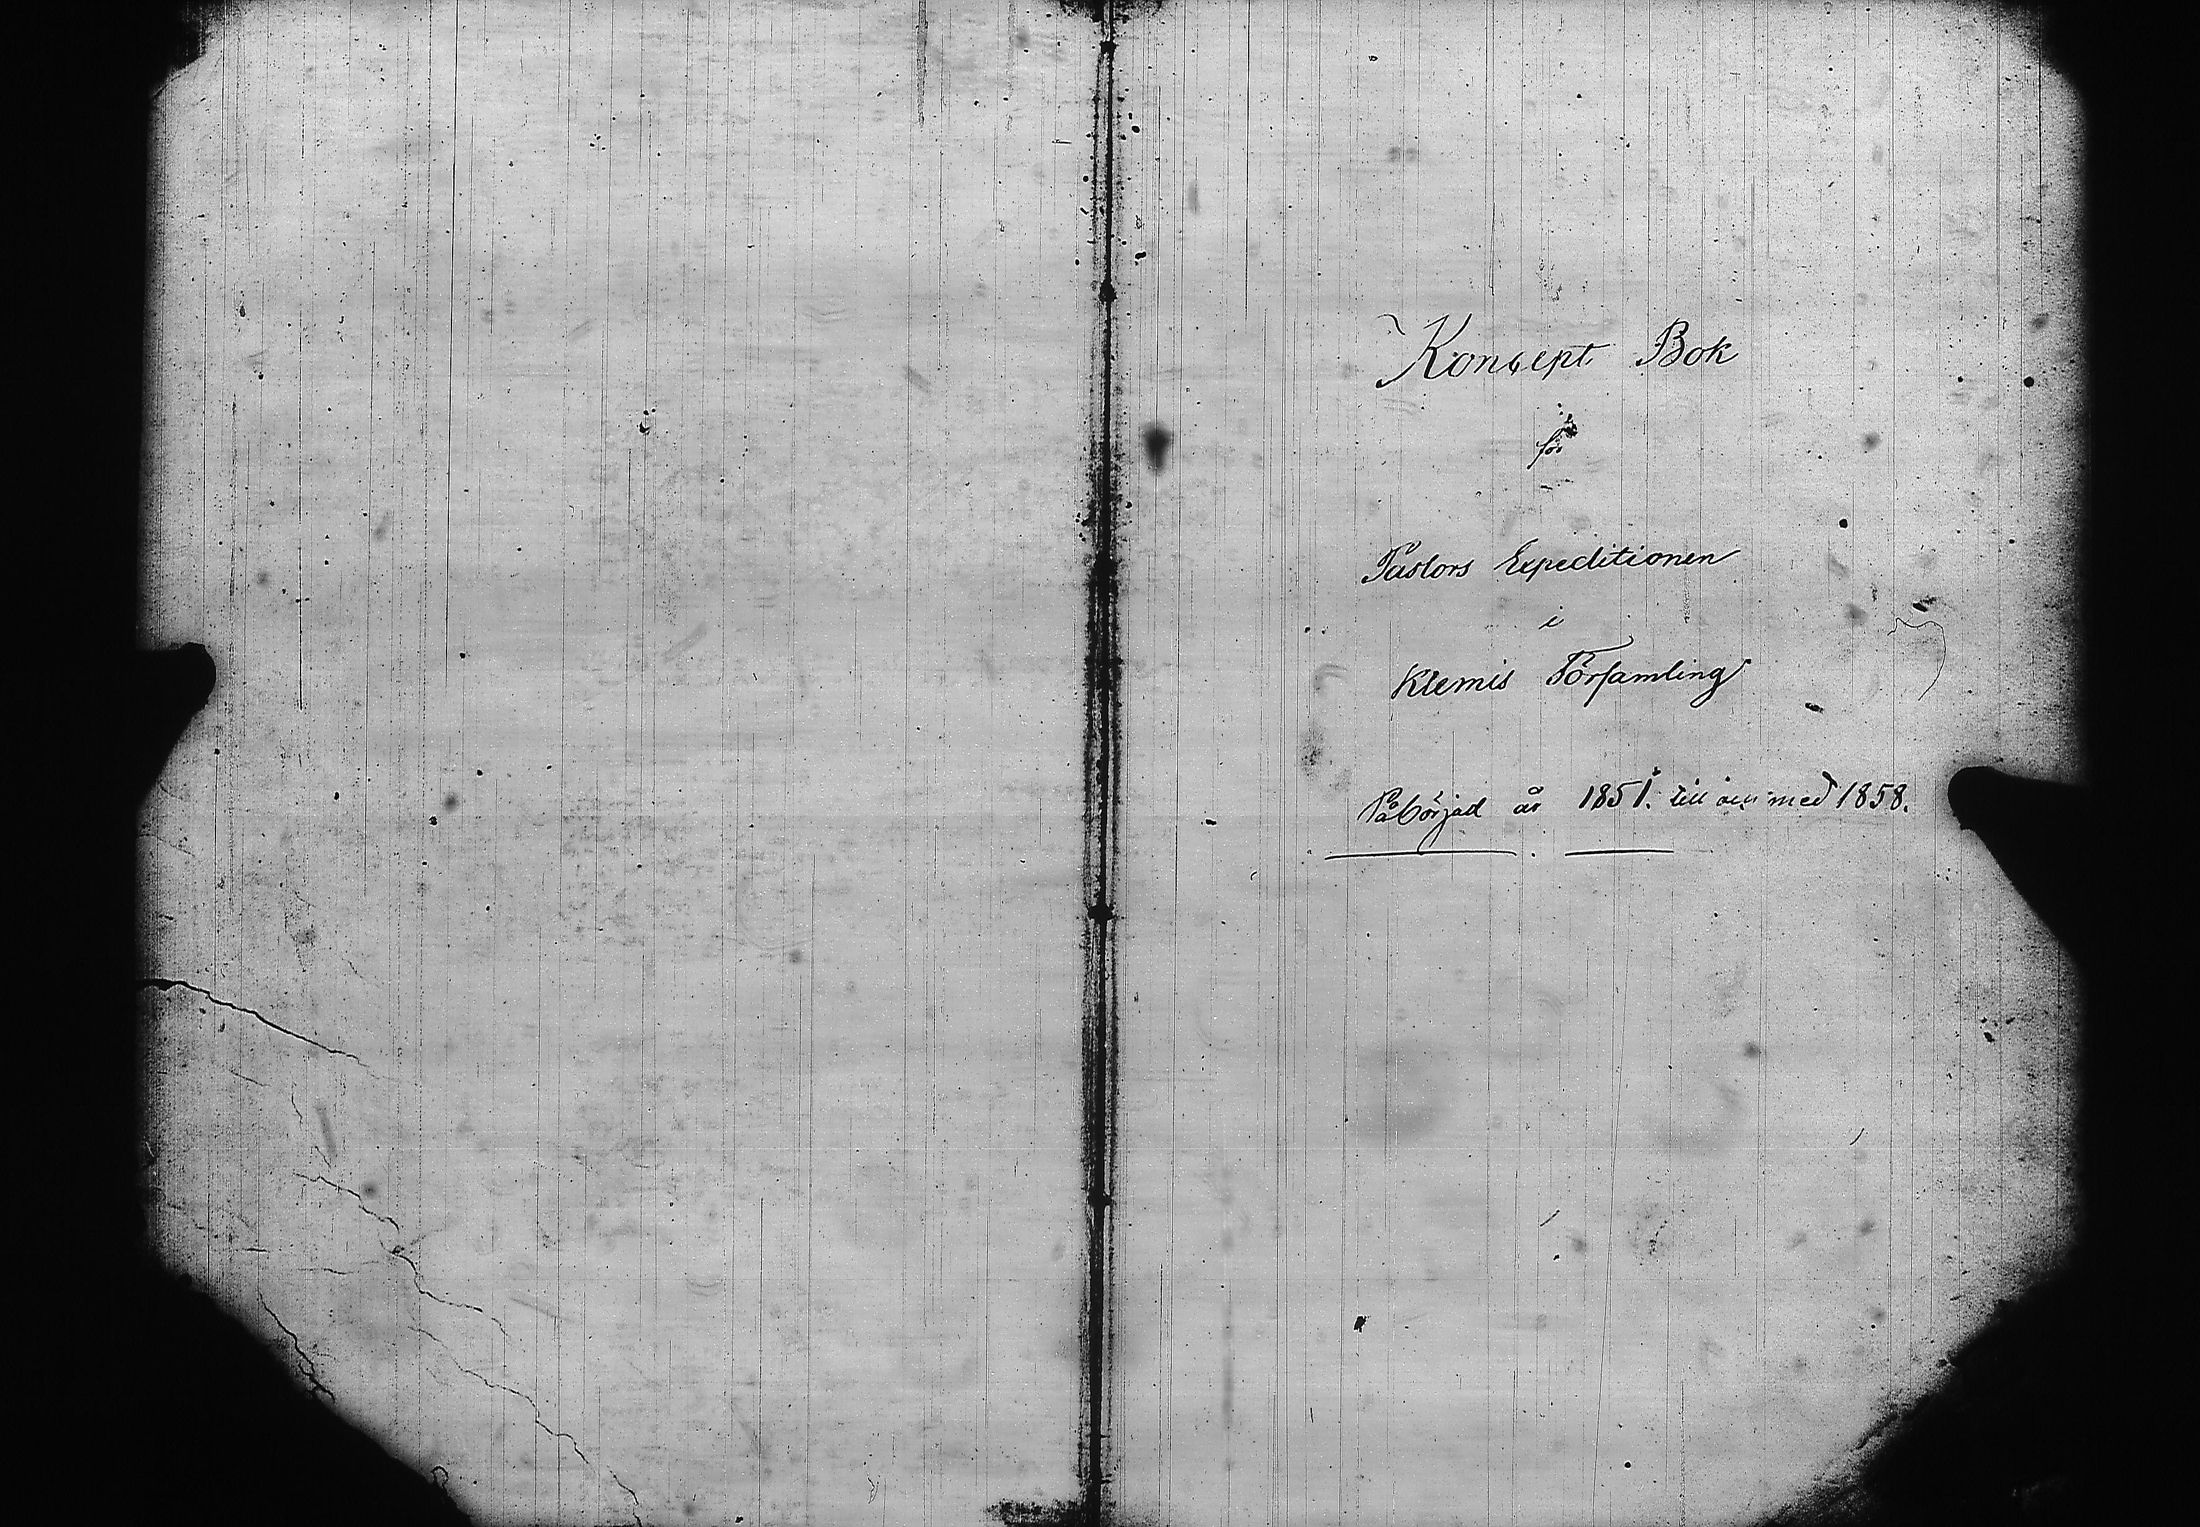 Koncept Bok
för
Pastors Expeditionen
i
Klemis Församling
Påbörjad år 1851. till och med 1858.